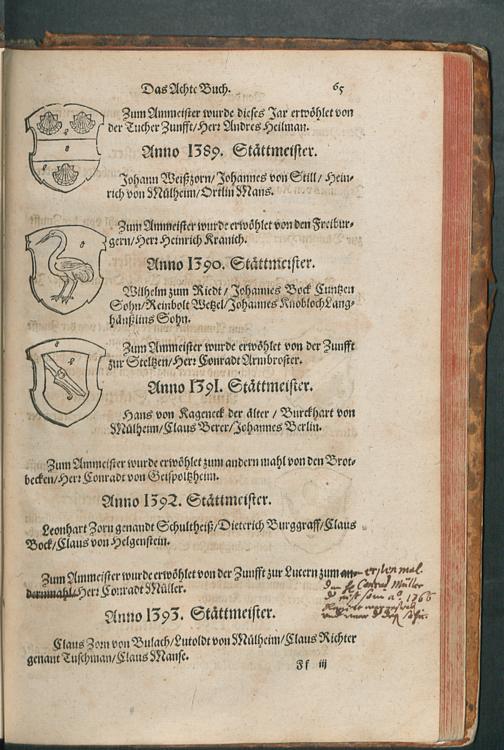 Das Achte Buch. 65
Zum Ammeister wurde dieses Jar erwöhlet von
der Tucher Zunfft/Herr Andres Heilman.
Anno 1389. Stättmeister.
Johann Weißzorn/Johannes von Still/Hein-
rich von Mülheim/Ortlin Mans.
Zum Ammeister wurde erwöhlet von den Freibur-
gern/Herr Heinrich Kranich.
Anno 1390. Stättmeister.
Wilhelm zum Riedt/Johannes Bock Cuntzen
Sohn/Reinbolt Wetzel/Johannes Knobloch Lang-
hänßlins Sohn.
Zum Ammeister wurde erwöhlet von der Zunfft
zur Steltzen/Herr Conradt Armbroster.
Anno 1391. Stättmeister.
Hans von Kageneck der älter/Burckhart von
Mülheim/Claus Berer/Johannes Berlin.
Zum Ammeister wurde erwöhlet zum andern mahl von den Brot-
becken/Herr Conradt von Geispoltzheim.
Anno 1392. Stättmeister.
Leonhart Zorn genandt Schultheiß/Dieterich Burggraff/Claus
Bock/Claus von Helgenstein.
Zum Ammeister wurde erwöhlet von der Zunfft zur Lucern zum an- ersten mal
dernmahl/Herr Conradt Müller. Conrad Müller
Anno 1393. Stättmeister.
Claus Zorn von Bulach/Lutoldt von Mülheim/Claus Richter
genant Tuschman/Claus Manse.
Ff iij